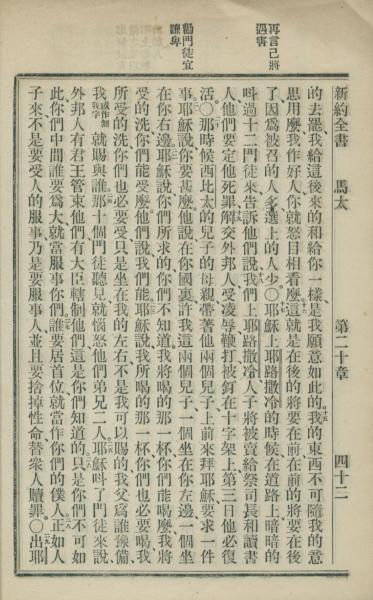 新約全書 馬太 第二十章 四十二
的去罷我給這後來的和給你一樣是我願意如此的我的東西不可隨我的意
思用麼我作好人你就怒目相看麼這就是在後的將要在前在前的將要在後
了因爲被召的人多選上的人少○耶穌上耶路撒冷的時候在道路上暗暗的
呌過十二門徒來告訴他們說我們上耶路撒冷人子將被賣給祭司長和讀書
人他們要定他死罪解交外邦人受凌辱鞭打被釘在十字架上第三日他必復
活○那時候西比太的兒子的母親帶著他兩個兒子上前來拜耶穌要求一件
事耶穌說你要甚麼他說在你國裏許我這兩個兒子一個坐在你左邊一個坐
在你右邊耶穌說你們所求的你們不知道我將喝的那一杯你們能喝麼我將
受的洗你們能受麼他們說我們能耶穌說我所喝的那一杯你們也必要喝我
所受的洗你們也必要受只是坐在我的左右不是我可以賜的我父爲誰豫備
我或作無我字就賜與誰那十個門徒聽見就惱怒他們弟兄二人耶穌呌了門徒來說
外邦人有君王管束他們有大臣轄制他們這是你們知道的只是你們不可如
此你們中間誰要爲大就當服事你們誰要居首位就當作你們的僕人正如人
子來不是要受人的服事乃是要服事人並且要捨掉性命替衆人贖罪○出耶
再言己將遇害
勸門徒宜謙卑